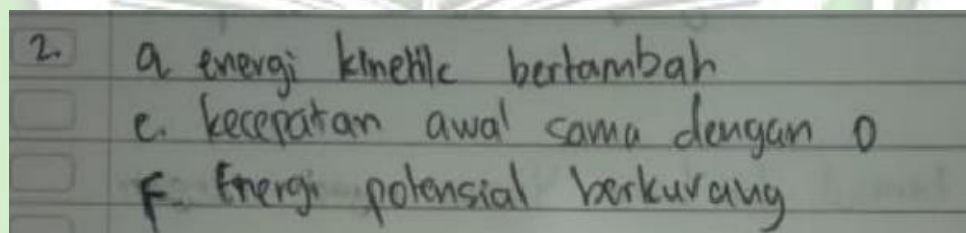 2. a energi kinetik bertambah
e. kecepatan awal sama dengan 0
F. Energi potensial berkurang